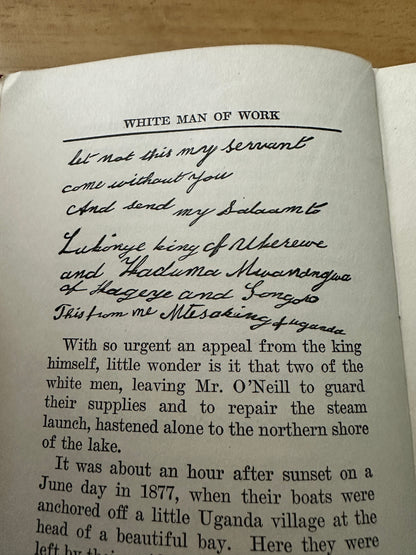 WHITE MAN OF WORK
let not this my servant
come without you
And send my Salaam to
Lukonye king of Ukerewe
and Kaduma Mwanangwa
of Kageye and Songoro
This from me Mtesa king of uganda
With so urgent an appeal from the king
himself, little wonder is it that two of the
white men, leaving Mr. O'Neill to guard
their supplies and to repair the steam
launch, hastened alone to the northern shore
of the lake.
It was about an hour after sunset on a
June day in 1877, when their boats were
anchored off a little Uganda village at the
head of a beautiful bay. Here they were
left by their